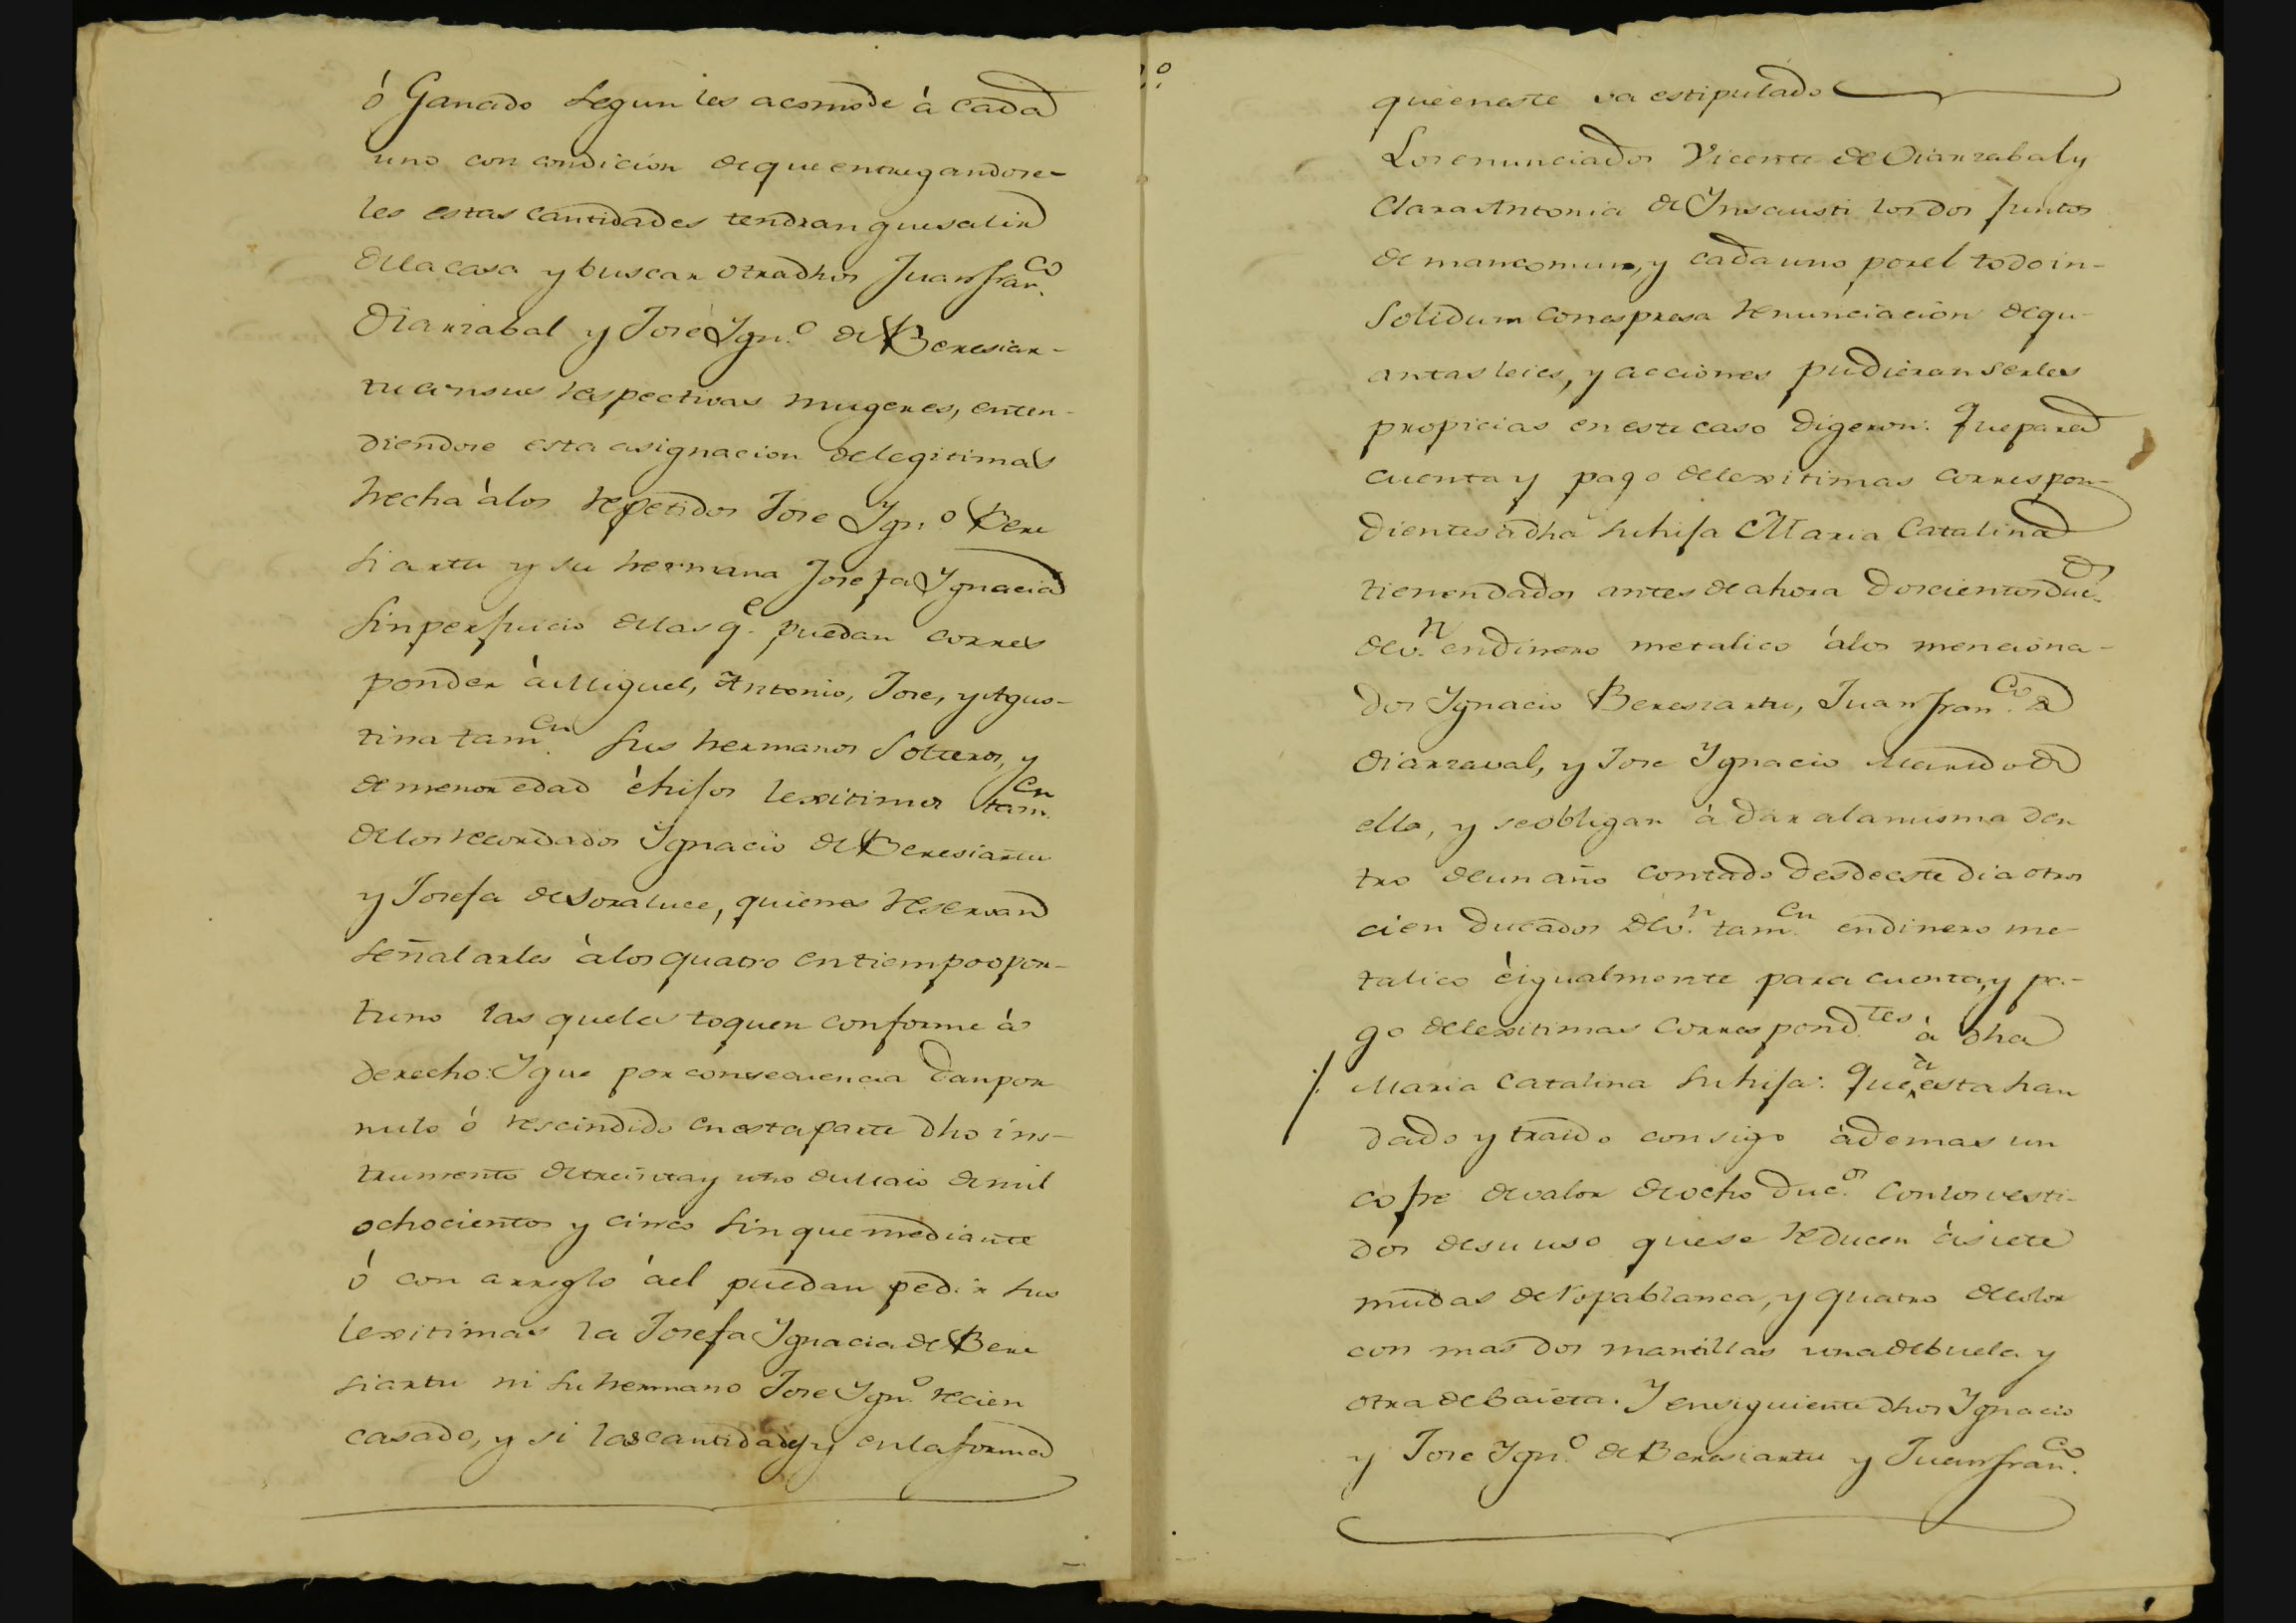 ó Ganado segun les acomode à cada
uno con condicion de que entregandose-
les estas cantidades tendran que salir
de la casa y buscar otra dhos Juan Fran.co
Oianzabal y José Ygn.o de Beresiar-
tu con sus respectivas mugeres, enten-
diendose esta asignacion de legitimas
hecha à los repetidos Jose Ygn.o Bere
siartu y su hermana Josefa Ygnacia
sin perjuicio de las q.e puedan corres
ponder à Miguel, Antonio, Jose, y Agus-
tina tam.en sus hermanos solteros, y
de menor edad è hijos lexitimos tam.en
de los recordados Ygnacio de Beresiartu
y Josefa de Soraluce, quienes reservan
señalarles à los quatro en tiempo opor-
tuno las que les toquen conforme à
derecho: Y que por consecuencia dan por
nulo ó rescindido en esta parte dho ins-
trumento de treinta y uno de Maio de mil
ochocientos y cinco sin que mediante
ó con arreglo à el puedan pedir sus
lexitimas la Josefa Ygnacia de Bere
siartu ni su hermano Jose Ygn.o recien
casado, y si las cantidades y en la forma
que en este va estipulado
Los enunciados Vicente de Oianzabal y
Clara Antonia de Ynsausti los dos juntos
de mancomun, y cada uno por el todo in-
solidum con espresa renunciacion de qu-
antas leies, y acciones pudieran serles
propicias en este caso digeron: Que para
cuenta y pago de lexitimas correspon-
dientes à dha su hija Maria Catalina
tienen dados antes de ahora doscientos duc.os
de v.n en dinero metalico à los menciona-
dos Ygnacio Beresiartu, Juan Fran.co de
Oianzaval, y Jose Ygnacio Marido de
ella, y se obligan à dar a la misma den
tro de un año contado desde este dia otros
cien ducados de v.n tam.en en dinero me-
talico è igualmente para cuenta, y pa-
go de lexitimas correspond.tes à dha
Maria Catalina su hija: Que à esta han
dado y traido consigo àdemas un
cofre de valor de ocho duc.os con los vesti-
dos de su uso que se reducen à siete
mudas de ropa blanca, y quatro de color
con mas dos mantillas una de buela y
otra de baieta. Y en siguiente dhos Ygnacio
y Jose Ygn.o de Beresiartu y Juan Fran.co